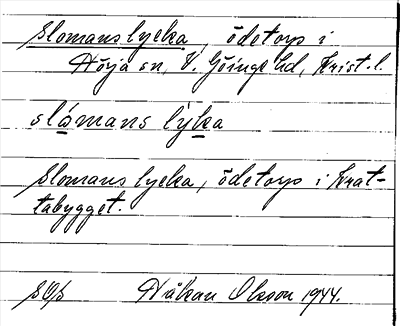 Slomanslycka, ödetorp i
Hörja sn, V. Göinge hd, Krist. l.
slåmans lỳka
Slomanslycka, ödetorp i Krat-
tabygget.
SOS Håkan Olsson 1944.